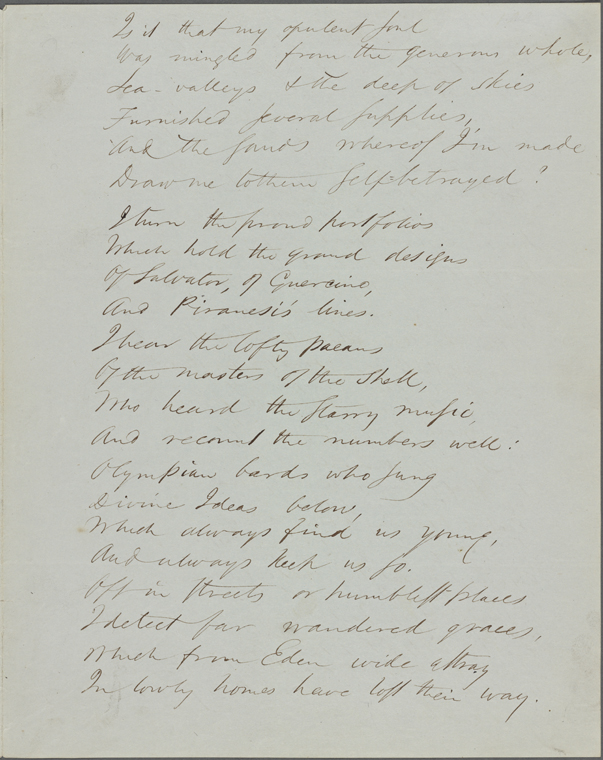 Is it that my opulent soul
Was mingled from the generous whole,
Sea-valleys & the deep of skies
Furnished several supplies,
And the sands whereof I'm made
Draw me to them self-betrayed?
I turn the proud portfolios
Which hold the grand designs
Of Salvator, of Guercino,
And Piranesi's lines.
I hear the lofty paeans
Of the masters of the Shell,
Who heard the starry music,
And recount the numbers well:
Olympian bards who sung
Divine Ideas below,
Which always find us young,
And always keep us so.
Oft in streets or humblest places
I detect far wandered graces,
Which from Eden wide astray
In lowly homes have lost their way.